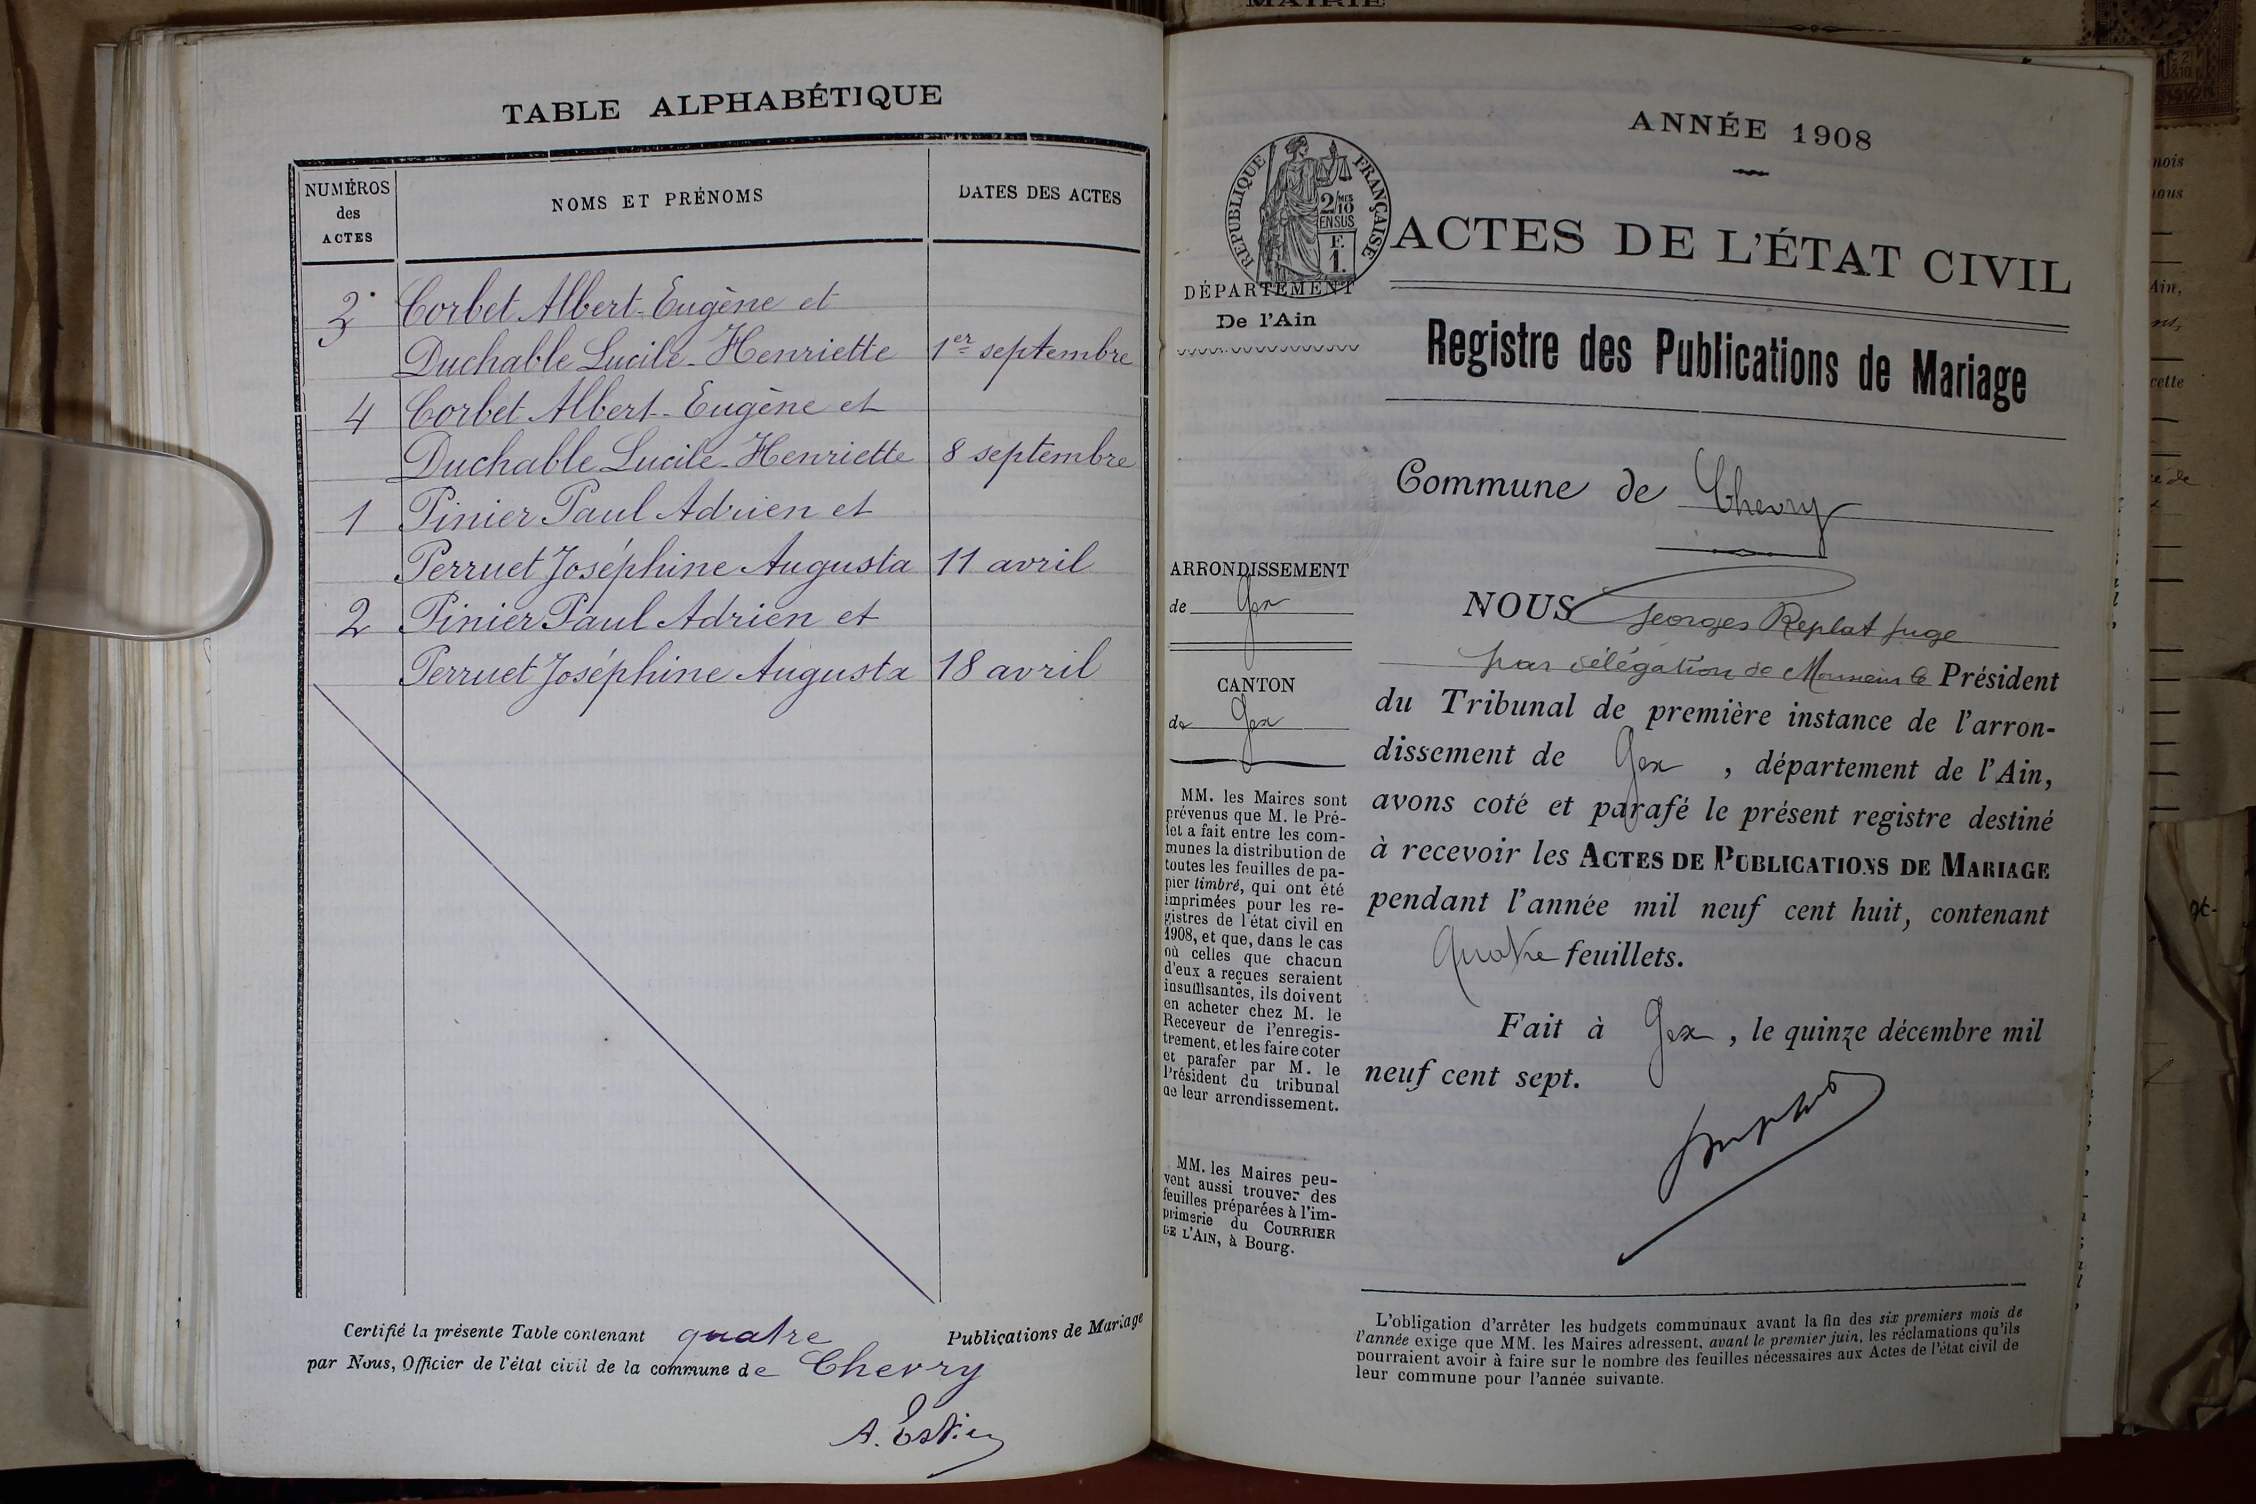 TABLE ALPHABÉTIQUE
NUMÉROS
des
ACTES
NOMS ET PRÉNOMS
DATES DES ACTES
3 Corbet Albert-Eugène et
Duchable Lucile-Henriette 1er septembre
4 Corbet Albert-Eugène et
Duchable Lucile-Henriette 8 septembre
1 Pinier Paul Adrien et
Perruet Joséphine Augusta 11 avril
2 Pinier Paul Adrien et
Perruet Joséphine Augusta 18 avril
Certifié la présente Table contenant quatre Publications de Mariage
par Nous, Officier de l'état civil de la commune de Chevry
MAIRIE
ANNÉE 1908
RÉPUBLIQUE FRANÇAISE
2/10
MES
EN SUS
F.
1.
ACTES DE L'ÉTAT CIVIL
DÉPARTEMENT
De l'Ain
Registre des Publications de Mariage
Commune de Chevry
ARRONDISSEMENT
de Gex
CANTON
de Gex
MM. les Maires sont
prévenus que M. le Pré-
fet a fait entre les com-
munes la distribution de
toutes les feuilles de pa-
pier timbré, qui ont été
imprimées pour les re-
gistres de l'état civil en
1908, et que, dans le cas
où celles que chacun
d'eux a reçues seraient
insuffisantes, ils doivent
en acheter chez M. le
Receveur de l'enregis-
trement, et les faire coter
et parafer par M. le
Président du tribunal
de leur arrondissement.
MM. les Maires peu-
vent aussi trouver des
feuilles préparées à l'im-
primerie du COURRIER
DE L'AIN, à Bourg.
NOUS Georges Replat juge
par délégation de Monsieur le Président
du Tribunal de première instance de l'arron-
dissement de Gex, département de l'Ain,
avons coté et parafé le présent registre destiné
à recevoir les ACTES DE PUBLICATIONS DE MARIAGE
pendant l'année mil neuf cent huit, contenant
quatre feuillets.
Fait à Gex, le quinze décembre mil
neuf cent sept.
L'obligation d'arrêter les budgets communaux avant la fin des six premiers mois de
l'année exige que MM. les Maires adressent, avant le premier juin, les réclamations qu'ils
pourraient avoir à faire sur le nombre des feuilles nécessaires aux Actes de l'état civil de
leur commune pour l'année suivante.